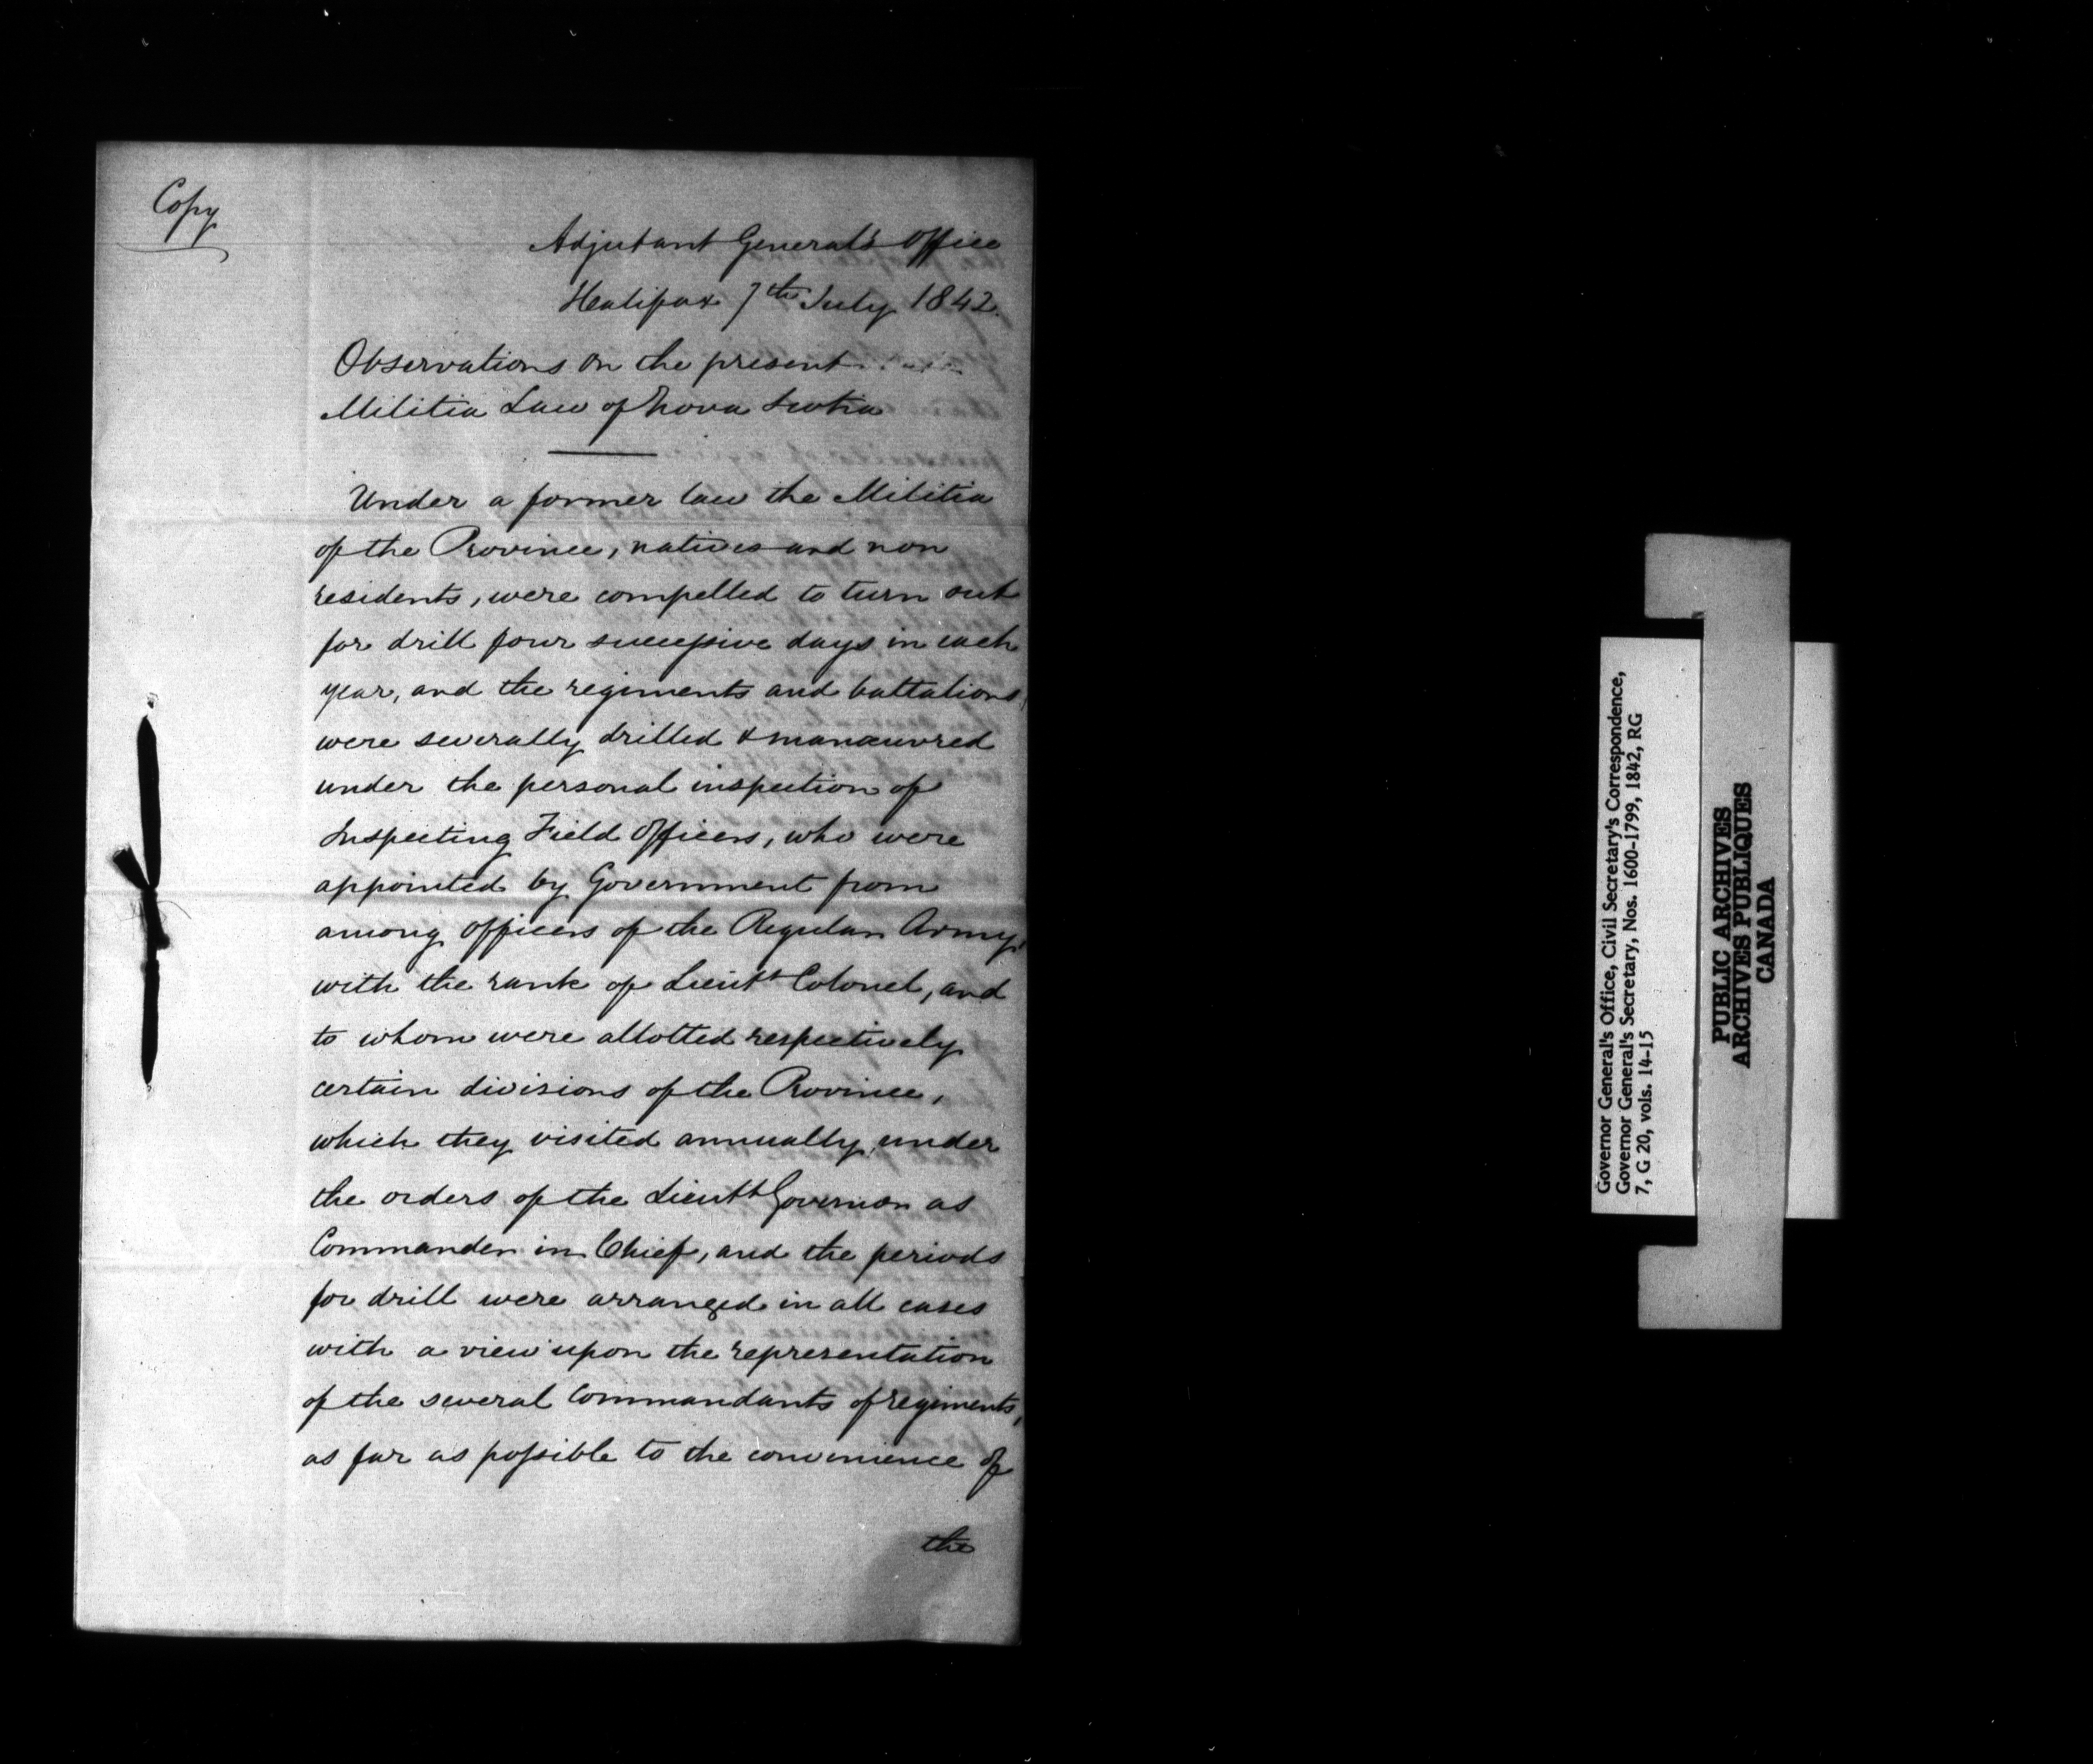 Copy
Adjutant General's Office
Halifax 7th July 1842.
Observations on the present
Militia Law of Nova Scotia
Under a former law the Militia
of the Province, natives and non
residents, were compelled to turn out
for drill four successive days in each
year, and the regiments and battalions,
were severally drilled & manœuvred
under the personal inspection of
Inspecting Field Officers, who were
appointed by Government from
among officers of the Regular Army,
with the rank of Lieutt Colonel, and
to whom were allotted respectively
certain divisions of the Province,
which they visited annually, under
the orders of the Lieutt Governor as
Commander in Chief, and the periods
for drill were arranged in all cases
with a view upon the representation
of the several Commandants of regiments,
as far as possible to the convenience of
the
Governor General's Office, Civil Secretary's Correspondence,
Governor General's Secretary, Nos. 1600-1799, 1842, RG
7, G 20, vols. 14-15
PUBLIC ARCHIVES
ARCHIVES PUBLIQUES
CANADA